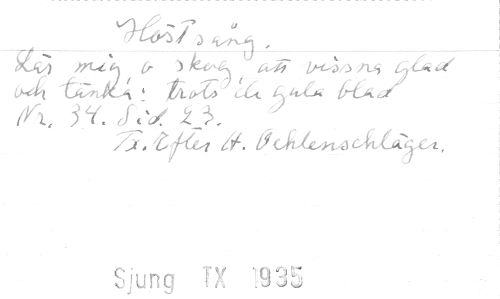 Höstsång.
Lär mig, o skog, att vissna glad
och tänka: trots de gula blad
Nr. 34. Sid. 23.
Tx. Efter A. Oehlenschläger.
Sjung TX 1935